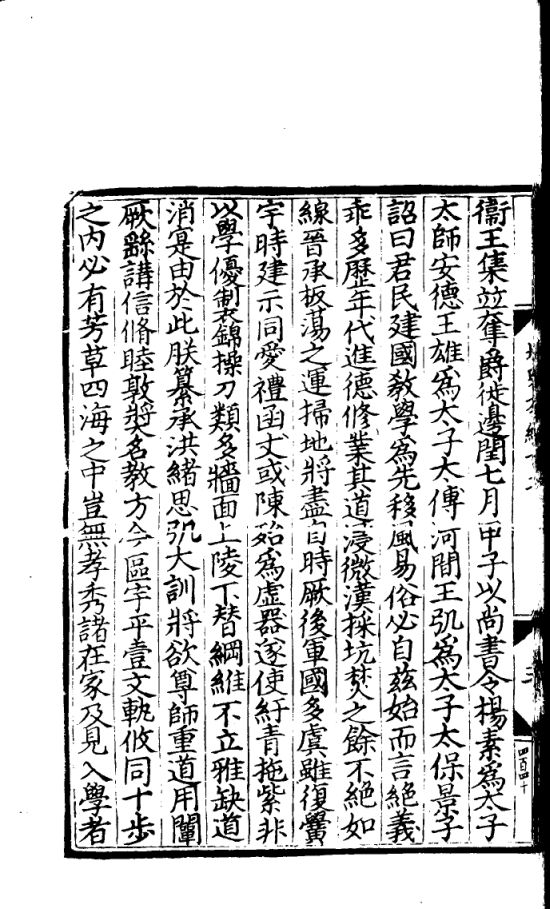 衞王集並奪爵徙邊閏七月甲子以尚書令楊素爲太子
太師安德王雄爲太子太傅河間王弘爲太子太保景子
詔曰君民建國敎學爲先移風易俗必自兹始而言絕義
乖多歷年代進德修業其道浸微漢採坑焚之餘不絕如
線晉承板蕩之運掃地將盡自時厥後軍國多虞雖復黌
宇時建示同愛禮函丈或陳殆爲虛器遂使紆青拖紫非
以學優製錦操刀類多牆面上陵下替綱維不立雅缺道
消寔由於此朕纂承洪緒思弘大訓將欲尊師重道用闡
厥繇講信脩睦敦奬名教方今區宇平壹文軌攸同十步
之内必有芳草四海之中豈無孝秀諸在家及見入學者
四百四十